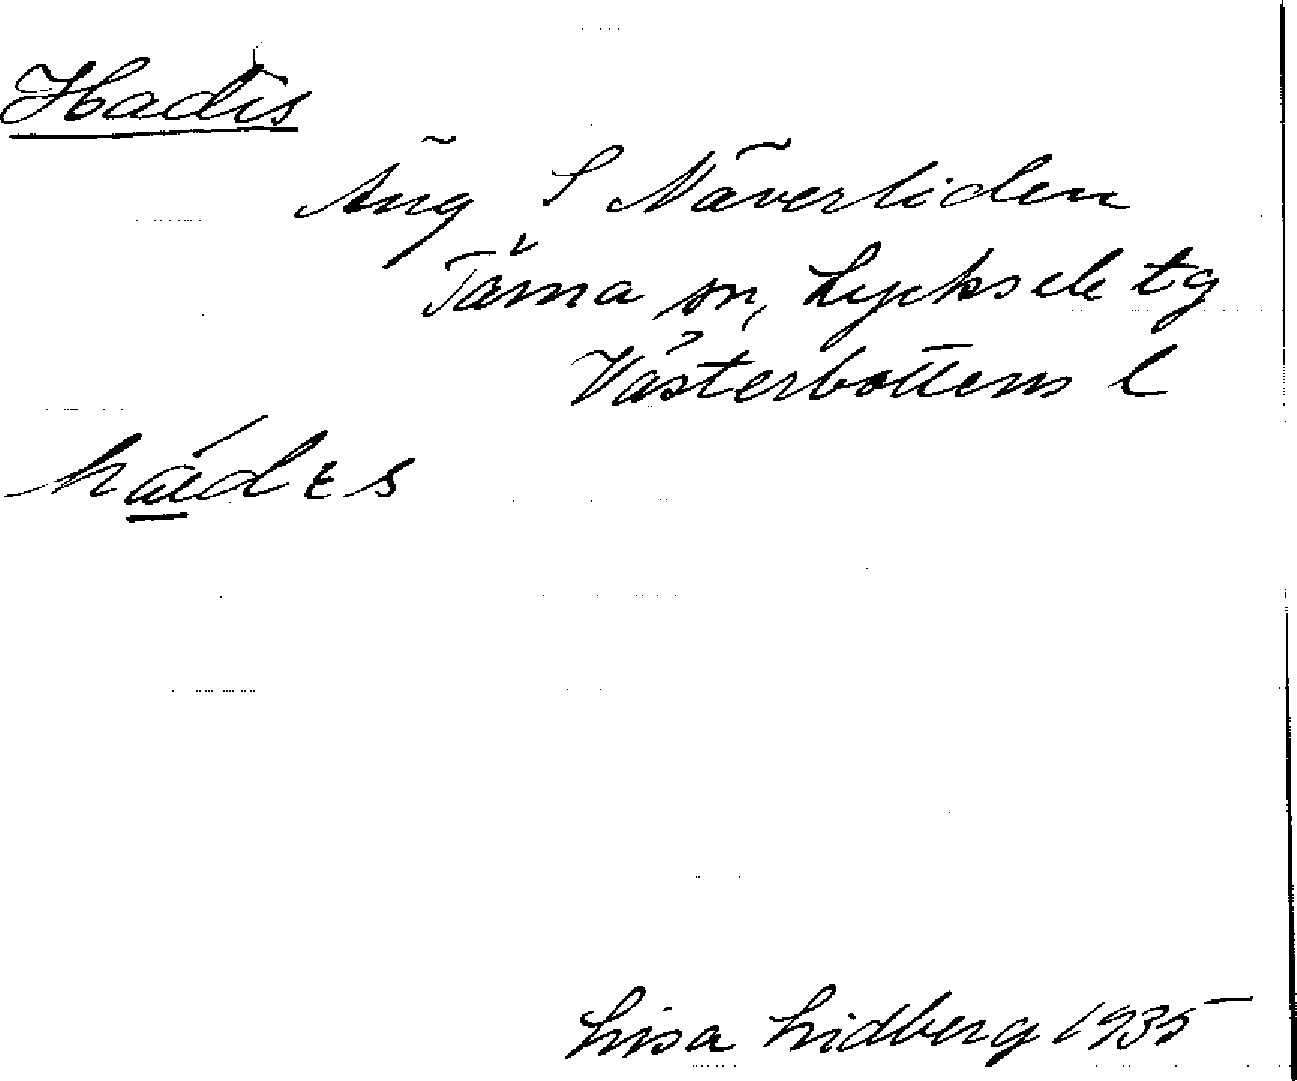 Hadis
Äng S Näverliden
Tärna sn, Lycksele tg
Västerbottens l
Lisa Lidberg 1935